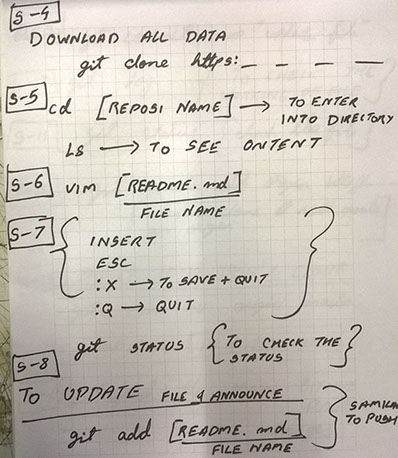 S-4
DOWNLOAD ALL DATA
git clone https: _ _ _ _
S-5 cd [REPOSI NAME] → TO ENTER
INTO DIRECTORY
LS → TO SEE ONTENT
S-6 VIM [README.md]
FILE NAME
S-7
INSERT
ESC
:X → TO SAVE + QUIT
:Q → QUIT
git STATUS { TO CHECK THE
STATUS }
S-8
TO UPDATE FILE & ANNOUNCE
git add [README.md]
FILE NAME
TO PUSH